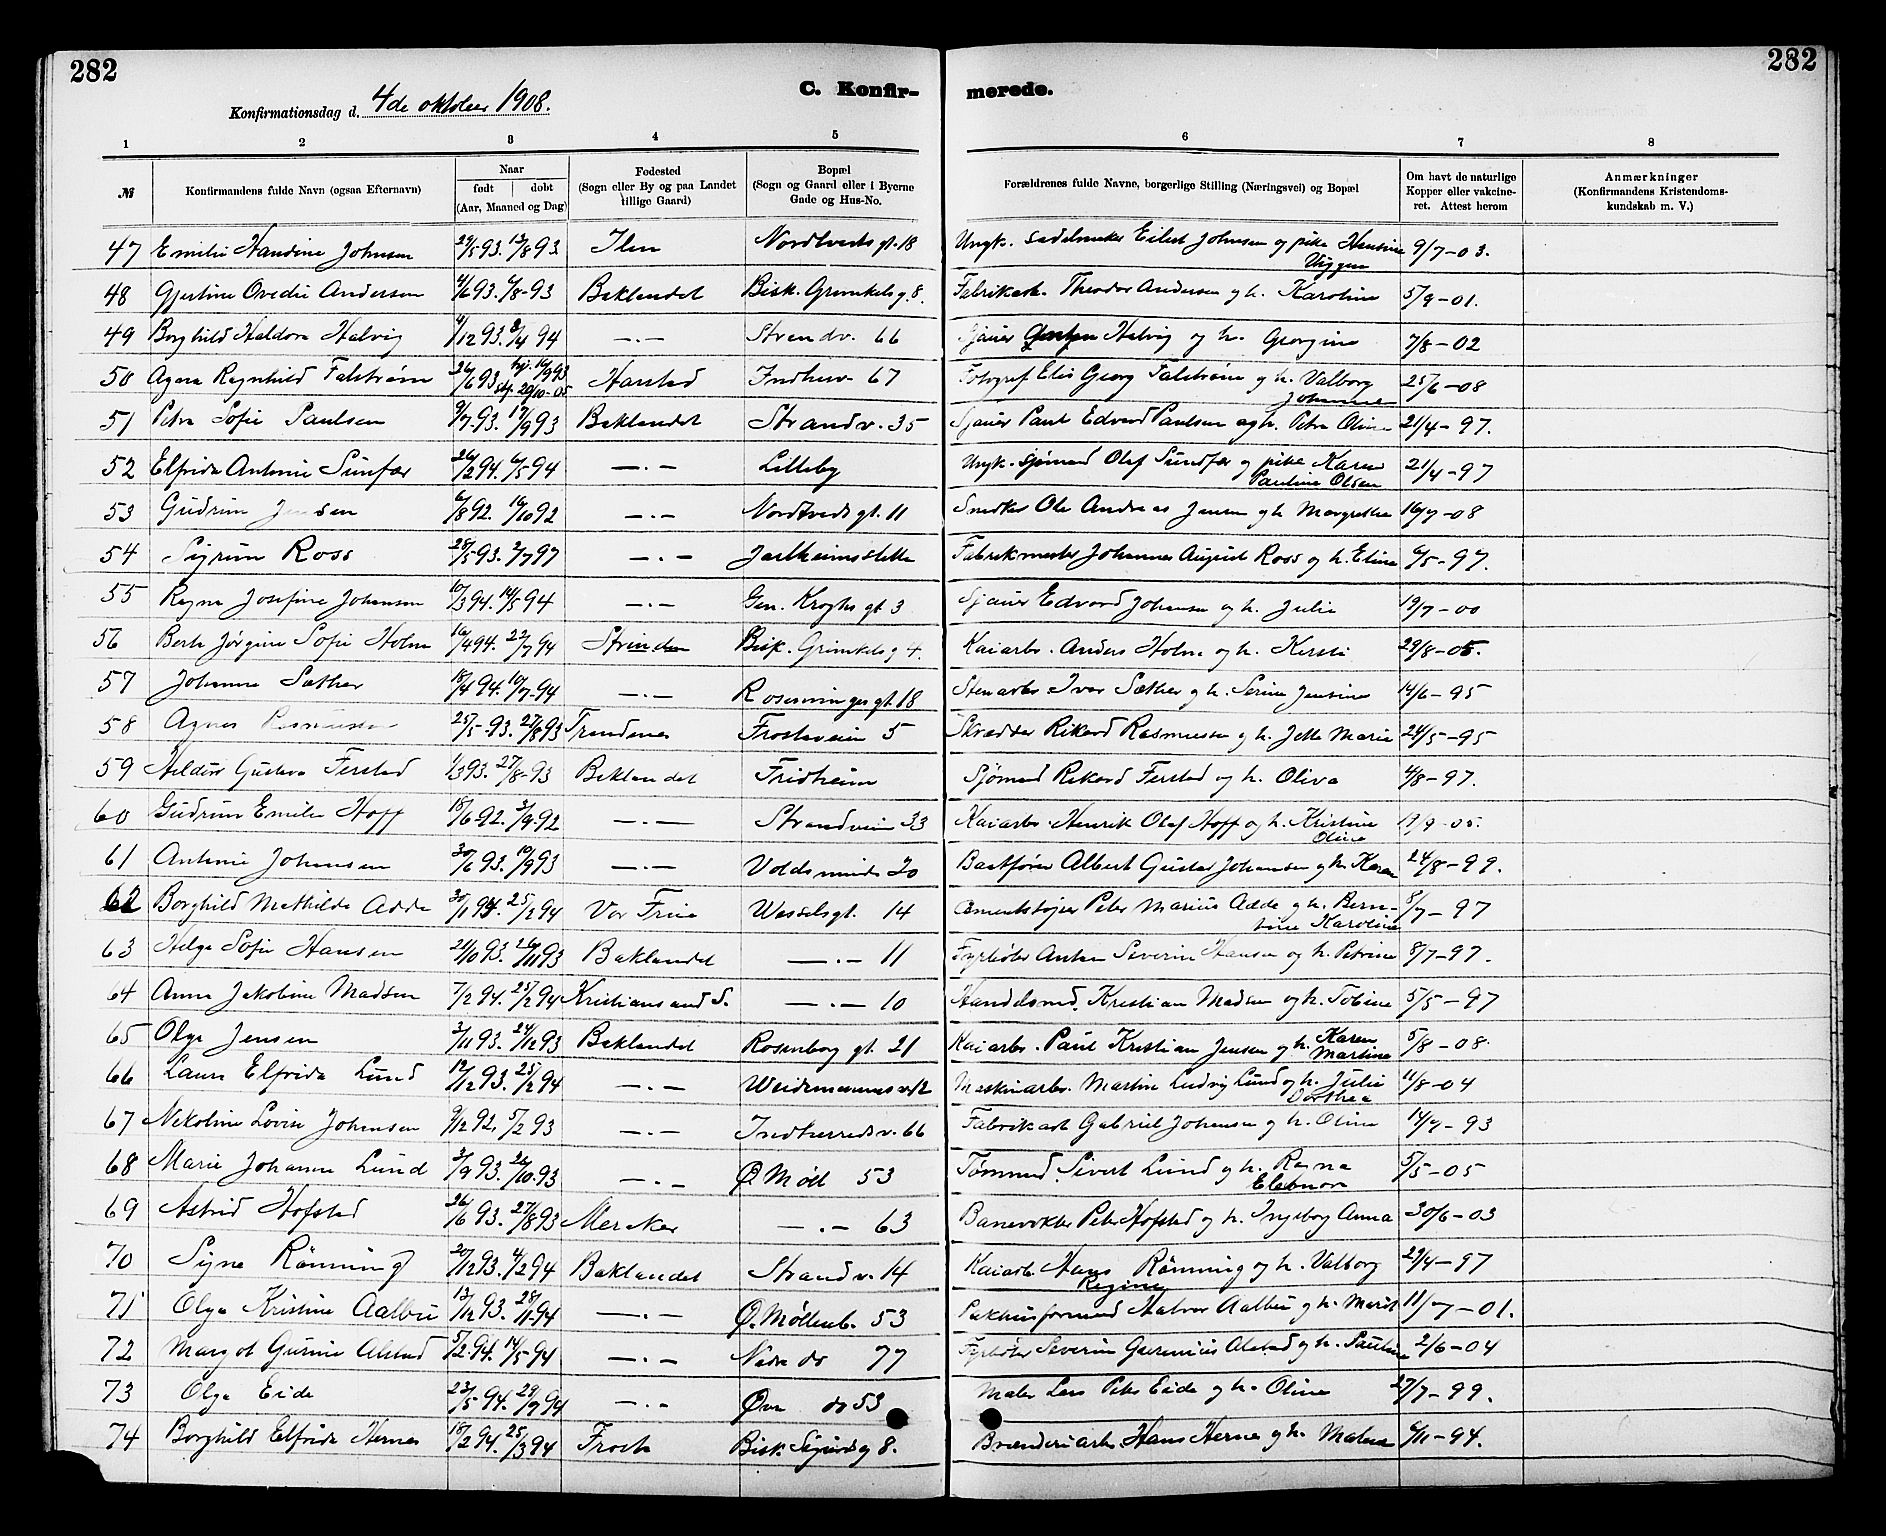 282
282
Konfirmationsdag d. 4de oktober 1908.
C. Konfir-
merede.
1 2 3 4 5 6 7 8
№
Konfirmandens fulde Navn (ogsaa Efternavn)
Naar
født døbt
(Aar, Maaned og Dag)
Fødested
(Sogn eller By og paa Landet
tillige Gaard)
Bopæl
(Sogn og Gaard eller i Byerne
Gade og Hus-No.
Forældrenes fulde Navne, borgerlige Stilling (Næringsvei) og Bopæl
Om havt de naturlige
Kopper eller vakcine-
ret. Attest herom
Anmærkninger
(Konfirmandens Kristendoms-
kundskab m. V.)
47 Emilie Handine Johnsen 29/5 93. 13/8 93 Ilen Nordtvedts gt. 18 Ungk. sadelmaker Eilert Johnsen og pike Hansine 9/7-03.
Viggen
48 Gjertine Ovedie Andersen 4/6 93. 6/8-93 Baklandet Bisk. Grimkels g. 8. Fabrikarb. Theodor Andersen og h. Karoline 5/9-01.
49 Borghild Haldora Helvig 4/12 93. 8/4 94 —.— Strandv. 66 Sjauer Helvig og h. Georgine 7/8-02
50 Agnes Ragnhild Falstrøm 26/6 93 hj. 16/9 93 Harstad Indherv. 67 Fotograf Elis Georg Falstrøm og h. Valborg 25/6-08
stf. 29/10-05 Johanne
51 Petra Sofie Paulsen 9/7-93. 17/9 93 Baklandet Strandv. 35 Sjauer Paul Edvard Paulsen og h. Petra Oline 21/4-97.
52 Elfrida Antonie Sundfær 26/2 94. 6/5 94 —.— Lilleby Ungk. sjømand Olaf Sundfær og pike Karen 21/4-97
Pauline Olsen
53 Gudrun Jensen 6/8 92. 16/10 92 —.— Nordtvedts gt. 11 Snedker Ole Andreas Jensen og h. Margrethe 16/7-08
54 Sigrun Ross 28/5 93. 2/7 97 —.— Jarlheimsletta Fabrikmester Johannes August Ross og h. Eline 6/5-97.
55 Ragna Josefine Johansen 10/3 94. 14/5 94 —.— Gen. Kroghs gt 3 Sjauer Edvard Johansen og h. Julie 19/7-00
56 Berte Jørgine Sofie Holm 16/4 94. 22/7 94 Strinden Bisk. Grimkels g 4. Kaiarb. Anders Holm og h. Kersti 29/8-05.
57 Johanne Sæther 18/4 94. 10/7-94 —.— Rosenvinges gt. 18 Stenarb. Ivar Sæther og h. Serine Jensine 14/6-95
58 Agnes Rasmussen 25/5-93. 27/8 93 Trondenes Frostaveien 5 Skrædder Rikard Rasmussen og h. Jette Marie 24/5-95
59 Haldis Gustava Ferstad 1/3 93. 27/8-93 Baklandet Fridheim Sjømand Rikard Ferstad og h. Oliva 4/8-97.
60 Gudrun Emilie Hoff 18/6-92. 3/9-92 —.— Strandveien 33 Kaiarb. Henrik Olaf Hoff og h. Kristine 19/9-05.
Oline
61 Antonie Johansen 30/6 93. 10/9 93 —.— Voldsminde 20 Baatfører Albert Gustav Johansen og h. Karen 24/8-99.
62 Borghild Mathilde Adde 30/11 93. 25/2 94 Vor Frue Wesselsgt. 14 Cementstøper Peter Marius Adde og h. Bern- 8/7-97
tine Karoline
63 Helga Sofie Hansen 21/10 93. 26/11 93 Baklandet —.— 11 Fyrbøter Anton Severin Hansen og h. Petrine 8/7-97.
64 Anna Jakobine Madsen 7/2 94. 25/2 94 Kristiansand S. —.— 10 Handelsmd. Kristian Madsen og h. Tobine 5/5-97
65 Olga Jensen 3/11 93. 24/12 93 Baklandet Rosenborg gt. 21 Kaiarb. Paul Kristian Jensen og h. Karen 5/8-08.
Martine
66 Laura Elfrida Lund 12/12 93. 25/2 94 —.— Weidemannsv. 12 Maskinarb. Martin Ludvig Lund og h. Julie 11/8-04
Dorthea
67 Nikoline Lovise Johansen 9/12 92. 5/2 93 —.— Indherredsv. 66 Fabrikarb Gabriel Johansen og h. Oline 14/7-93
68 Marie Johanne Lund 3/9 93. 26/10-93 —.— Ø. Møll 53 Tømmd. Sivert Lund og h. Ragna 5/5-05
Eleonora
69 Astrid Hofstad 26/6 93. 27/8 93 Meraker —.— 63 Banevokter Peter Hofstad og h. Ingeborg Anna 30/6-03
70 Signe Rönning 20/12 93. 4/2 94 Baklandet Strandv. 14 Kaiarb. Hans Rönning og h. Valborg 29/4-97
Regine
71 Olga Kristine Aalbu 13/12 93. 28/1-94 —.— Ø. Møllenb. 53 Pakhusformand Halvor Aalbu og h. Marit 11/7-01.
72 Margot Gurine Alstad 5/2-94. 14/5 94 —.— Nedre do 77 Fyrbøter Severin Alstad og h. Pauline 2/6-04
73 Olga Eide 23/5-94. 29/7 94 —.— Øvre do 53 Maler Lars Peter Eide og h. Oline 27/7-99.
74 Borghild Elfrida Hernes 18/2 94. 25/3 94 Frosta Bisk. Sigurds g 8. Brænderiarb Hans Hernes og h. Malena 6/11-94.